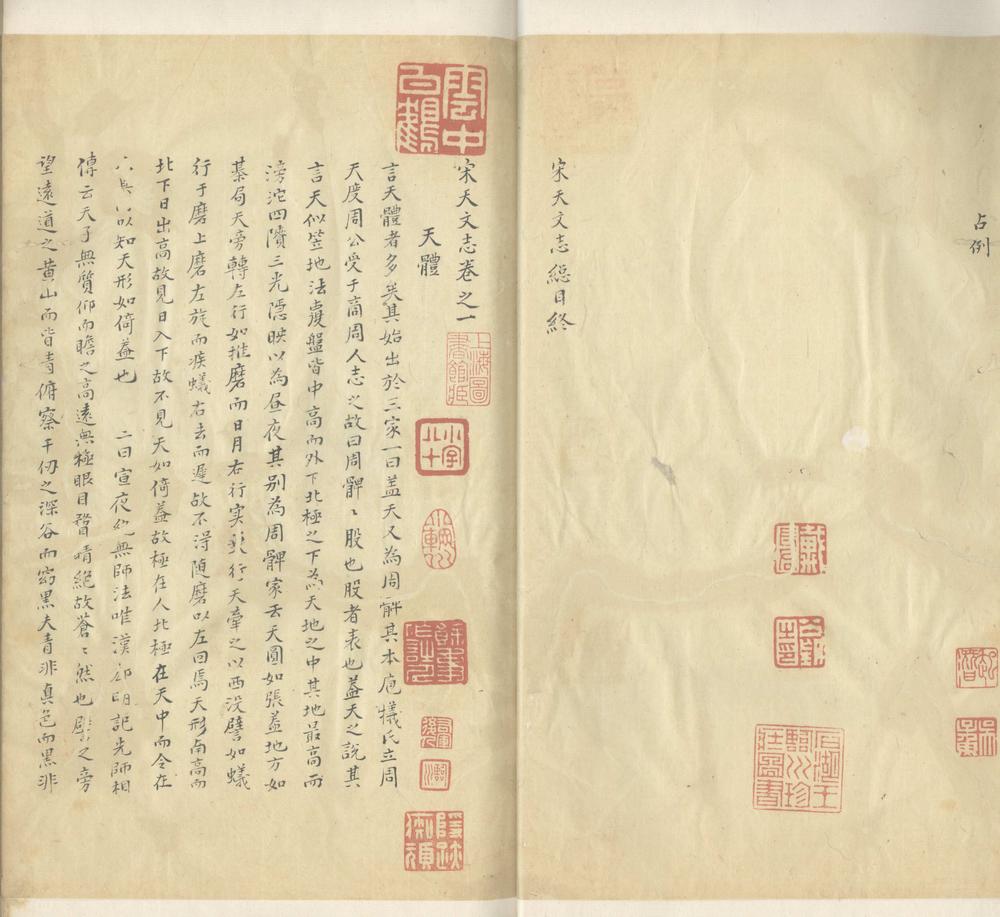 占例
宋天文志總目終
宋天文志卷之一
天體
言天體者多矣其始出於三家一曰盖天又為周髀其本庖犧氏立周
天度周公受于高周人志之故曰周髀〻股也股者表也盖天之說其
言天似笠地法覆盤皆中高而外下北極之下為天地之中其地最高而
滂沱四隤三光隱映以為昼夜其别為周髀家云天圓如張盖地方如
棊局天旁轉左行如推磨而日月右行天牽之以西没譬如蟻
行于磨上磨左旋而疾蟻右去而遲故不得随磨以左回焉天形南高而
北下日出高故見日入下故不見天如倚盖故極在人北極在天中而今在
人以知天形如倚盖也 二曰宣夜絶無師法唯漢記先師相
傳云天了無質仰而瞻之高遠無極眼目瞀精絶故蒼〻然也譬之旁
望遠道之黄山而皆青俯察千仞之深谷而窈黑夫青非真色而黑非
雲中白鶴
上海圖書館藏
小字八十